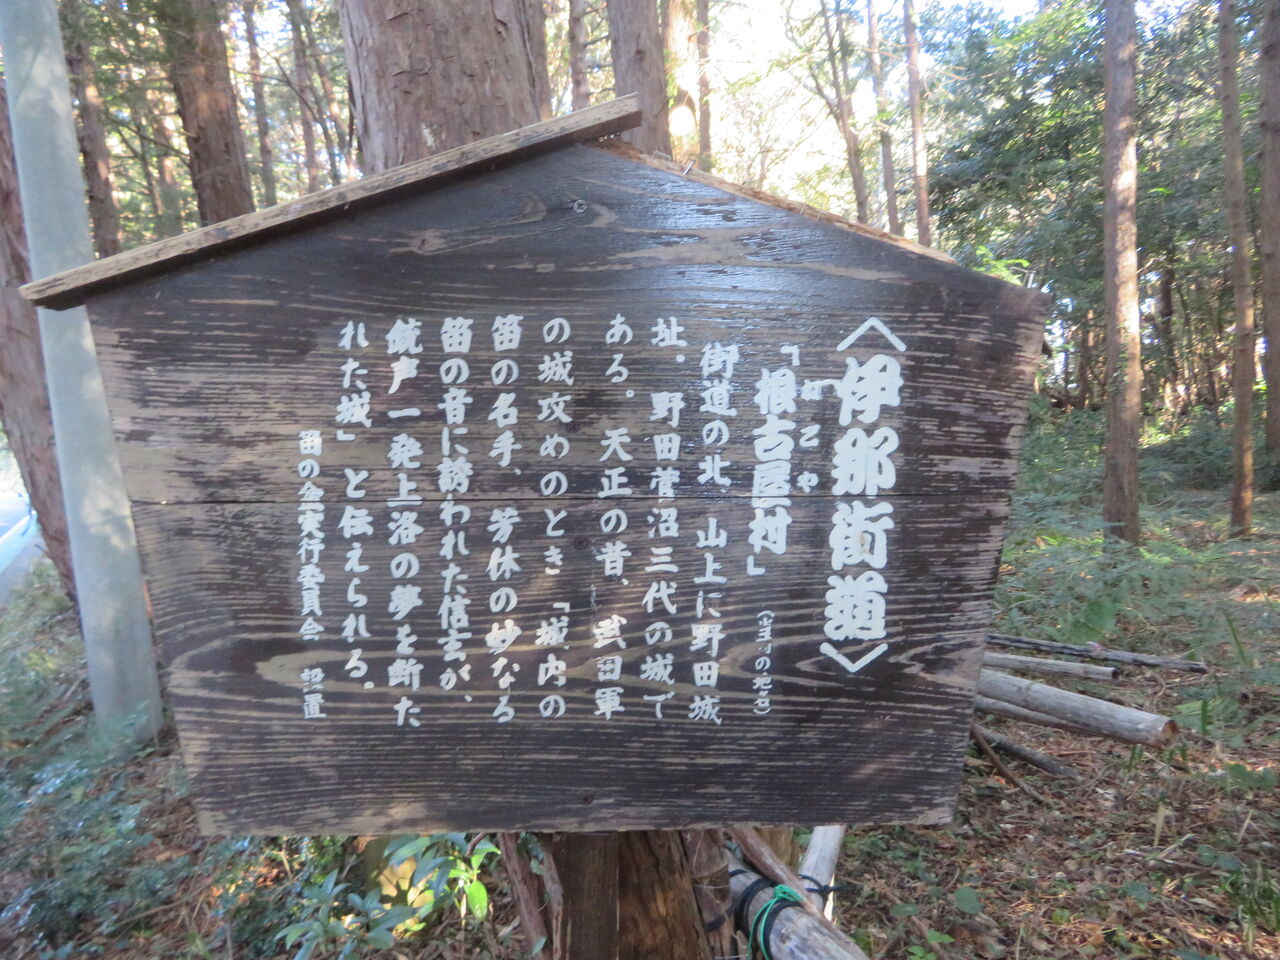 〈伊那街道〉
「根古屋村」
ねごや
街道の北、山上に野田城
址。野田菅沼三代の城で
ある。天正の昔、武田軍
の城攻めのとき「城内の
笛の名手、芳休の妙なる
笛の音に誘われた信玄が、
銃声一発上洛の夢を断た
れた城」と伝えられる。
笛の会実行委員会 設置